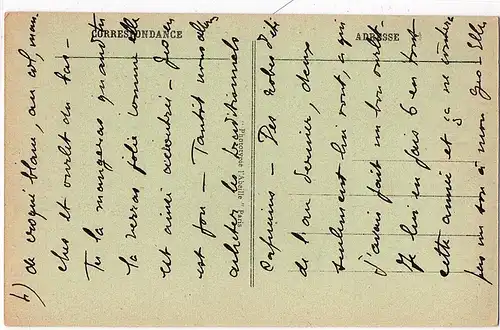 CORRESPONDANCE
ADRESSE
"Phototypie l'Abeille" Paris
4) de croquet blanc, au col, man-
ches et ourlet du bas -
Tu la mangeras quand tu
la verras jolie comme elle
est ainsi accoutrée - Geo en
est fou - Tantôt nous allons
acheter les traditionnels
capucins - Des robes d'été
de l'an dernier, deux
seulement lui vont, à qui
j'avais fait un bon ourlet -
Je lui en fais 6 en tout
cette année et ça ne coûtera
pas un sou à mon Geo - Elle